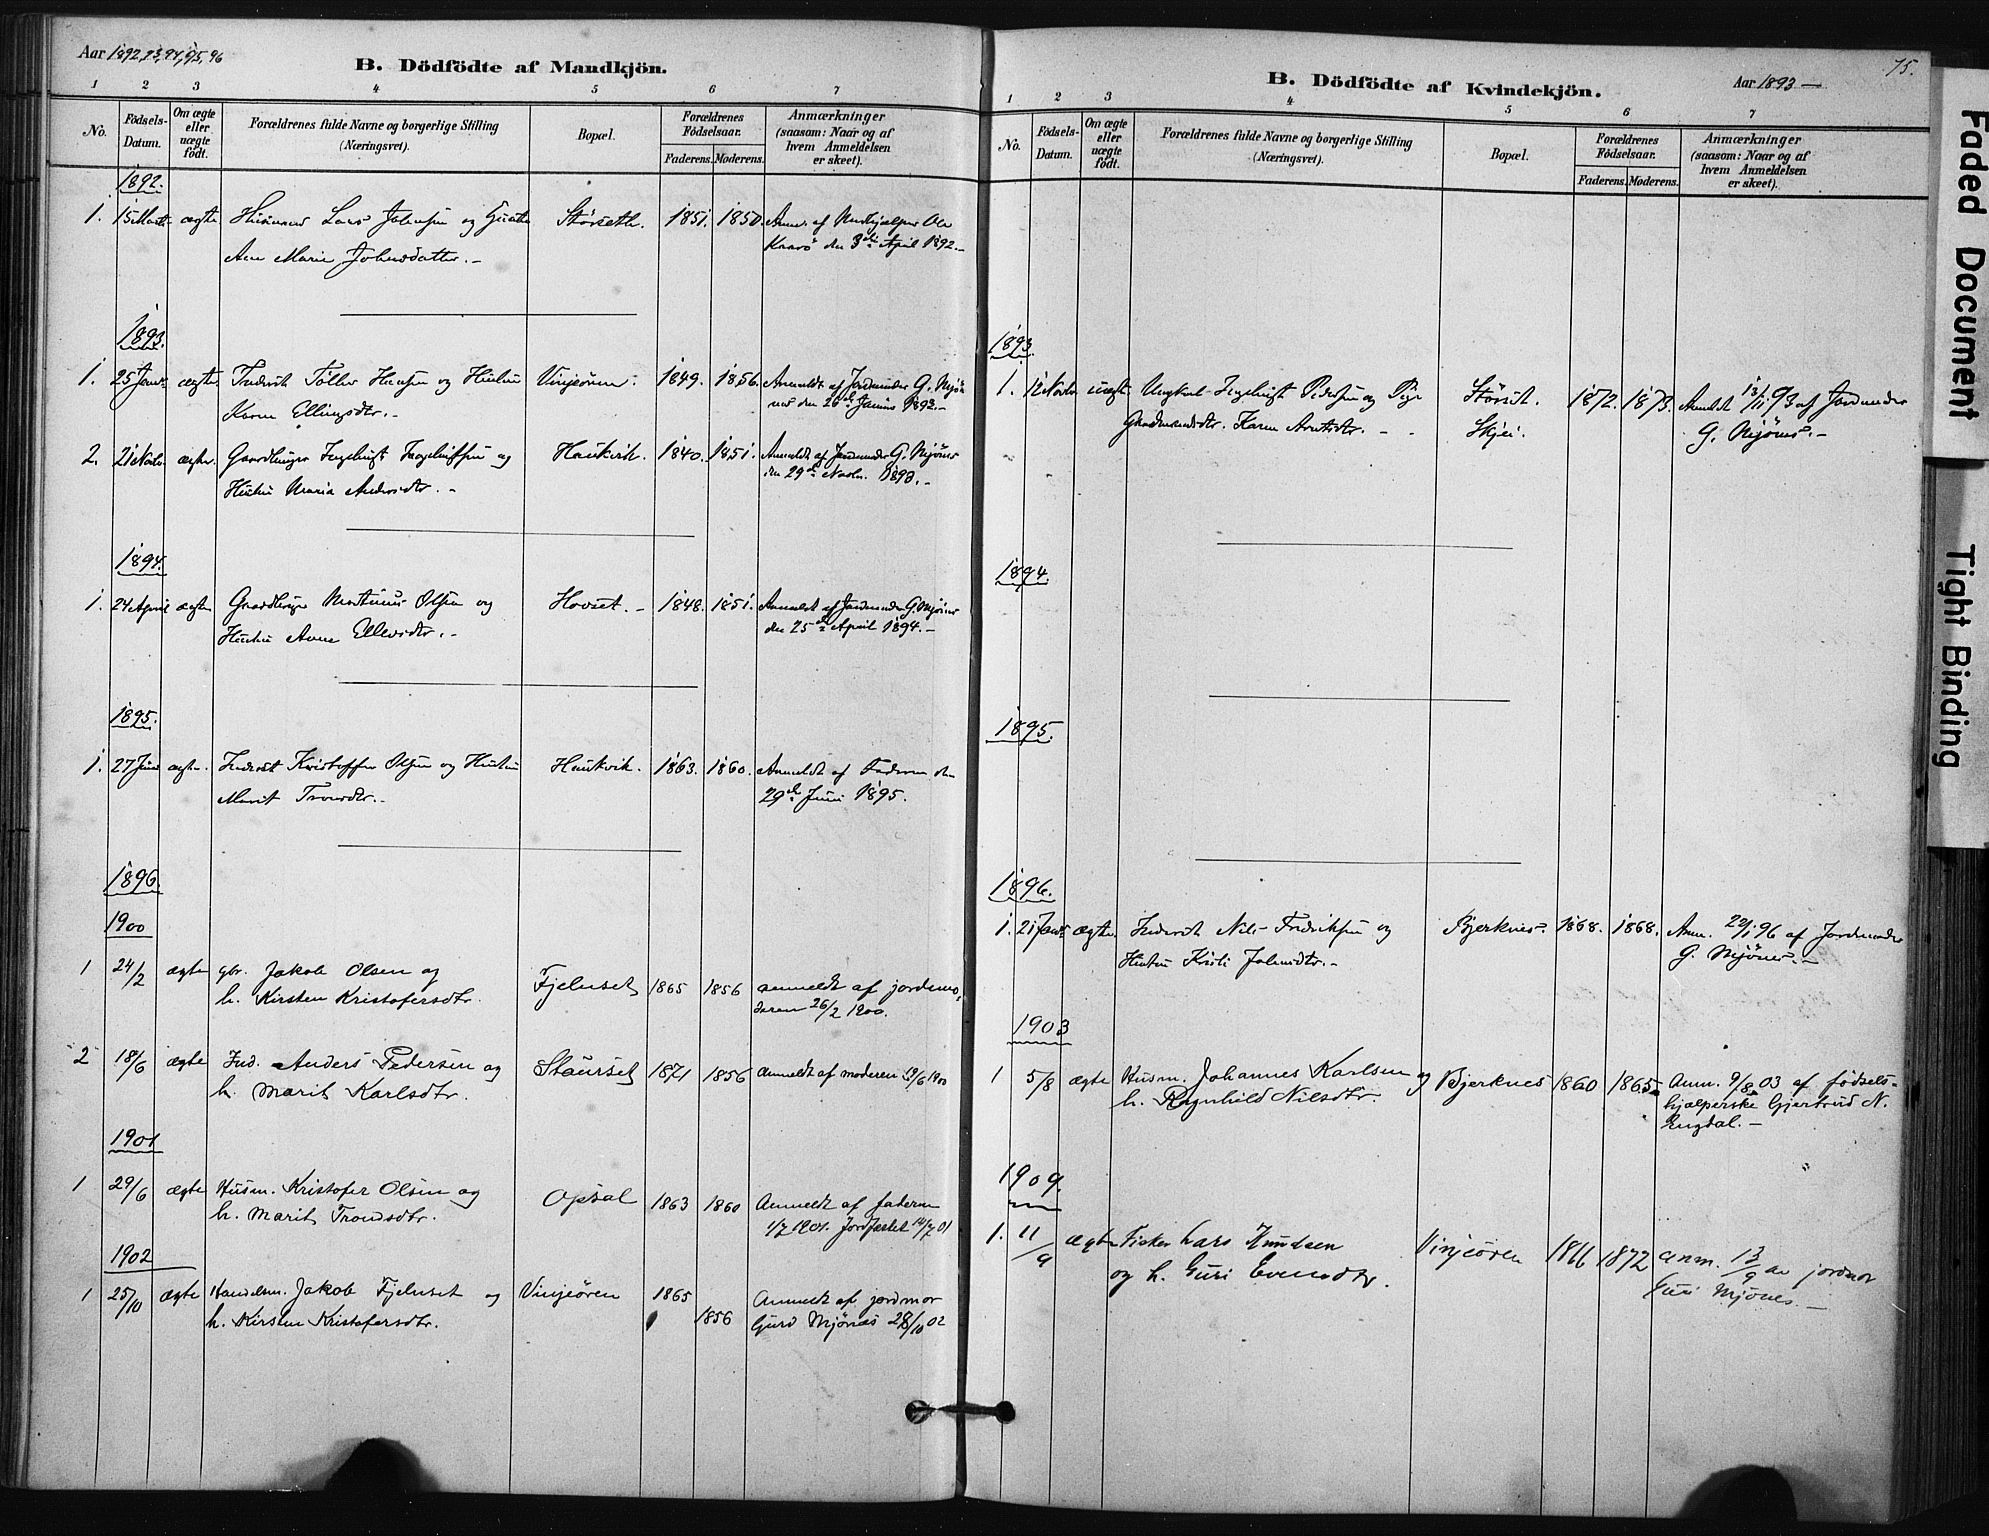 Aar 1892, 93, 94, 95, 96
B. Dödfödte af Mandkjön.
1 2 3 4 5 6 7
No. Födsels-Datum. Om ægte eller uægte födt. Forældrenes fulde Navne og borgerlige Stilling (Næringsvei). Bopæl. Forældrenes Födselsaar. Faderens. Moderens. Anmærkninger (saasom: Naar og af hvem Anmeldelsen er skeet).
1892.
1. 15 Marts ægte Husmand Lars Johnsen og Hustru Størseth. 1851. 1850. Anm. af Ole
Ane Marie Johnsdatter. – den 3die April 1892. –
1893.
1. 25 Janr. ægte. Inderst Töller Hansen og Hustru Vinjeøren. 1849. 1856. Anmeldt af Jordmoder G. Mjøn
Karen Ellingsdtr. – nes den 26de Januar 1893. –
2. 21 Novbr. ægte. Gaardbruger Ingebrigt Ingebrigtsen og Haukvik. 1840. 1851. Anmeldt af Jordmoder G. Mjønes
Hustru Maria Andersdtr. – den 29de Novbr. 1893. –
1894.
1. 24 April ægte Gaardbruger Martinus Olsen og Hovset. – 1848. 1851. Anmeldt af Jordmoder G. Mjönes
Hustru Anne Ellevsdtr. – den 25de April 1894. –
1895.
1. 27 Juni ægte. Inderst Kristoffer Olsen og Hustru Haukvik. 1863. 1860. Anmeldt af Faderen den
Marit Tronsdtr. – 29de Juni 1895.
1896.
1900
1 24/2 ægte gbr. Jakob Olsen og Fjelnset 1865 1856 anmeldt af jordemo-
h. Kirsten Kristofersdtr. deren 26/2 1900.
2 18/6 ægte Ind. Anders Pedersen og Staurset 1871 1856 anmeldt af moderen 19/6 1900
h. Marit Karlsdtr.
1901
1 29/6 ægte Husm. Kristofer Olsen og Opsal 1863 1860 Anmeldt af faderen
h. Marit Tronsdtr. 1/7 1901. Jordfæstet 14/7 01
1902
1 25/10 ægte Handelsm. Jakob Fjelnset og Vinjeören 1865 Anmeldt af jordmor
h. Kirsten Kristofersdtr. 1856 Gurd Mjönes 28/10 02
75.
B. Dödfödte af Kvindekjön.
Aar 1893 –
1 2 3 4 5 6 7
No. Födsels-Datum. Om ægte eller uægte födt. Forældrenes fulde Navne og borgerlige Stilling (Næringsvei). Bopæl. Forældrenes Födselsaar. Faderens. Moderens. Anmærkninger (saasom: Naar og af hvem Anmeldelsen er skeet).
1893.
1. 12 Novbr uægte. Ungkarl Ingebrigt Pedersen og Pige Størset. 1872. 1873. Anmeldt 13/11 93 af Jordmoder
Karen Arntsdtr. – Skjei. G. Mjönes. –
1894.
1895.
1896.
1. 21 Janr. ægte. Inderst Nils Fredriksen og Bjerknes. 1868. 1868. Anm. 22/1 96 af Jordmoder
Hustru Kristi Johnsdtr. – G. Mjönes. –
1903
1 5/8 ægte Husm. Johannes Karlsen og Bjerknes 1860 1865 Anm. 9/8 03 af fødsels-
h. Ragnhild Nilsdtr. hjælperske Gjertrud N.
Engdal. –
1909.
1. 11/9 ægte Fisker Lars Knudsen Vinjeören 1866 1872 anm. 13/9 av jordmor
og h. Guri Evensdtr. Guri Mjönes. –
Faded Document
Tight Binding